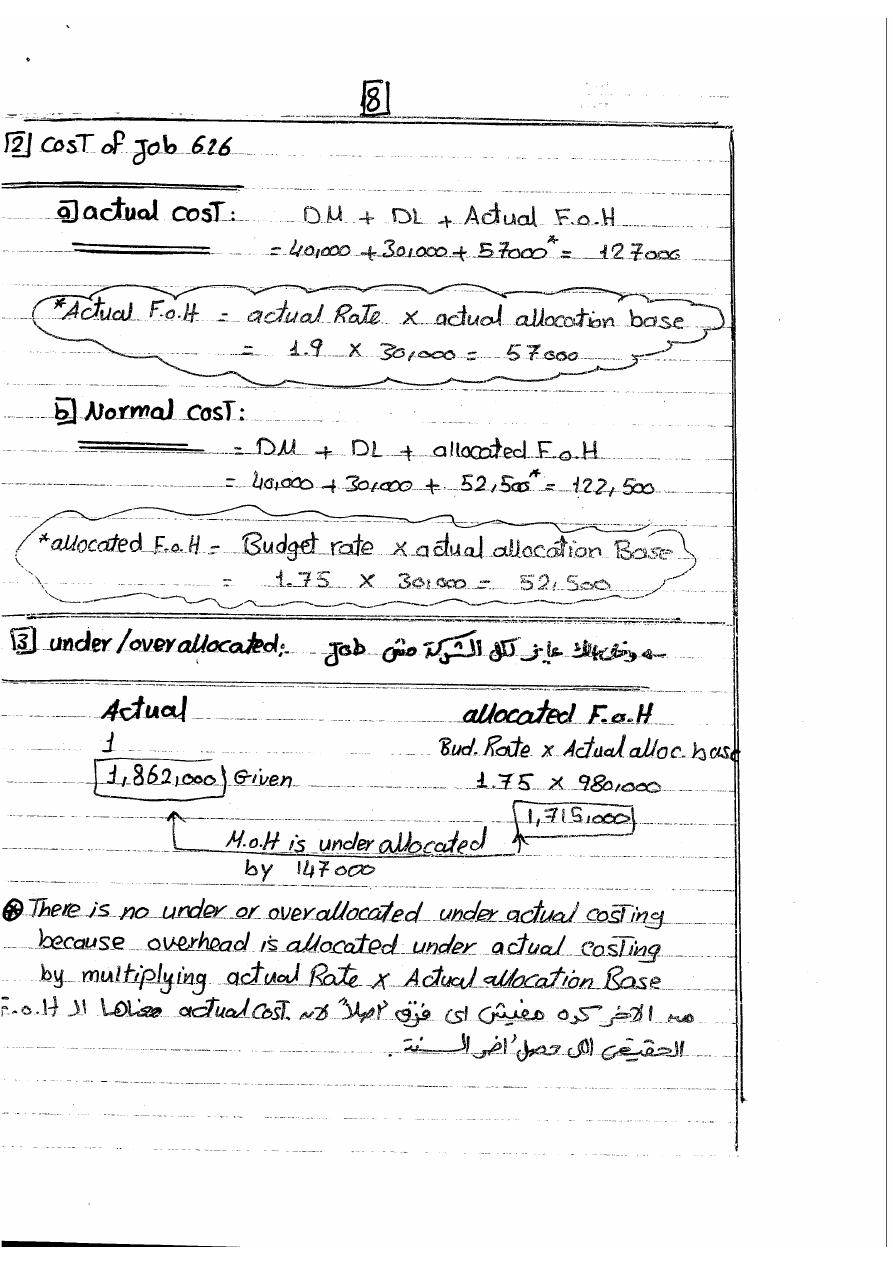 8
2 Cost of Job 626
a) actual cost: DM + DL + Actual F.o.H
= 40,000 + 30,000 + 57000* = 127000
*Actual F.o.H = actual Rate x actual allocation base
= 1.9 x 30,000 = 57000
b) Normal cost:
= DM + DL + allocated F.o.H
= 40,000 + 30,000 + 52,500* = 122,500
*allocated F.o.H = Budget rate x actual allocation Base
= 1.75 x 30,000 = 52,500
3 under/over allocated: عايز لكل الشركة مش Job
Actual allocated F.o.H
1 Bud. Rate x Actual alloc. base
1,862,000 Given 1.75 x 980,000
1,715,000
M.o.H is under allocated
by 147000
⊛ There is no under or over allocated under actual costing
because overhead is allocated under actual costing
by multiplying actual Rate x Actual allocation Base
من الاخر كده مفيش اى فرق اصلاً لان actual cost. معناها الـ F.o.H
الحقيقى اللى حصل اخر السنة.